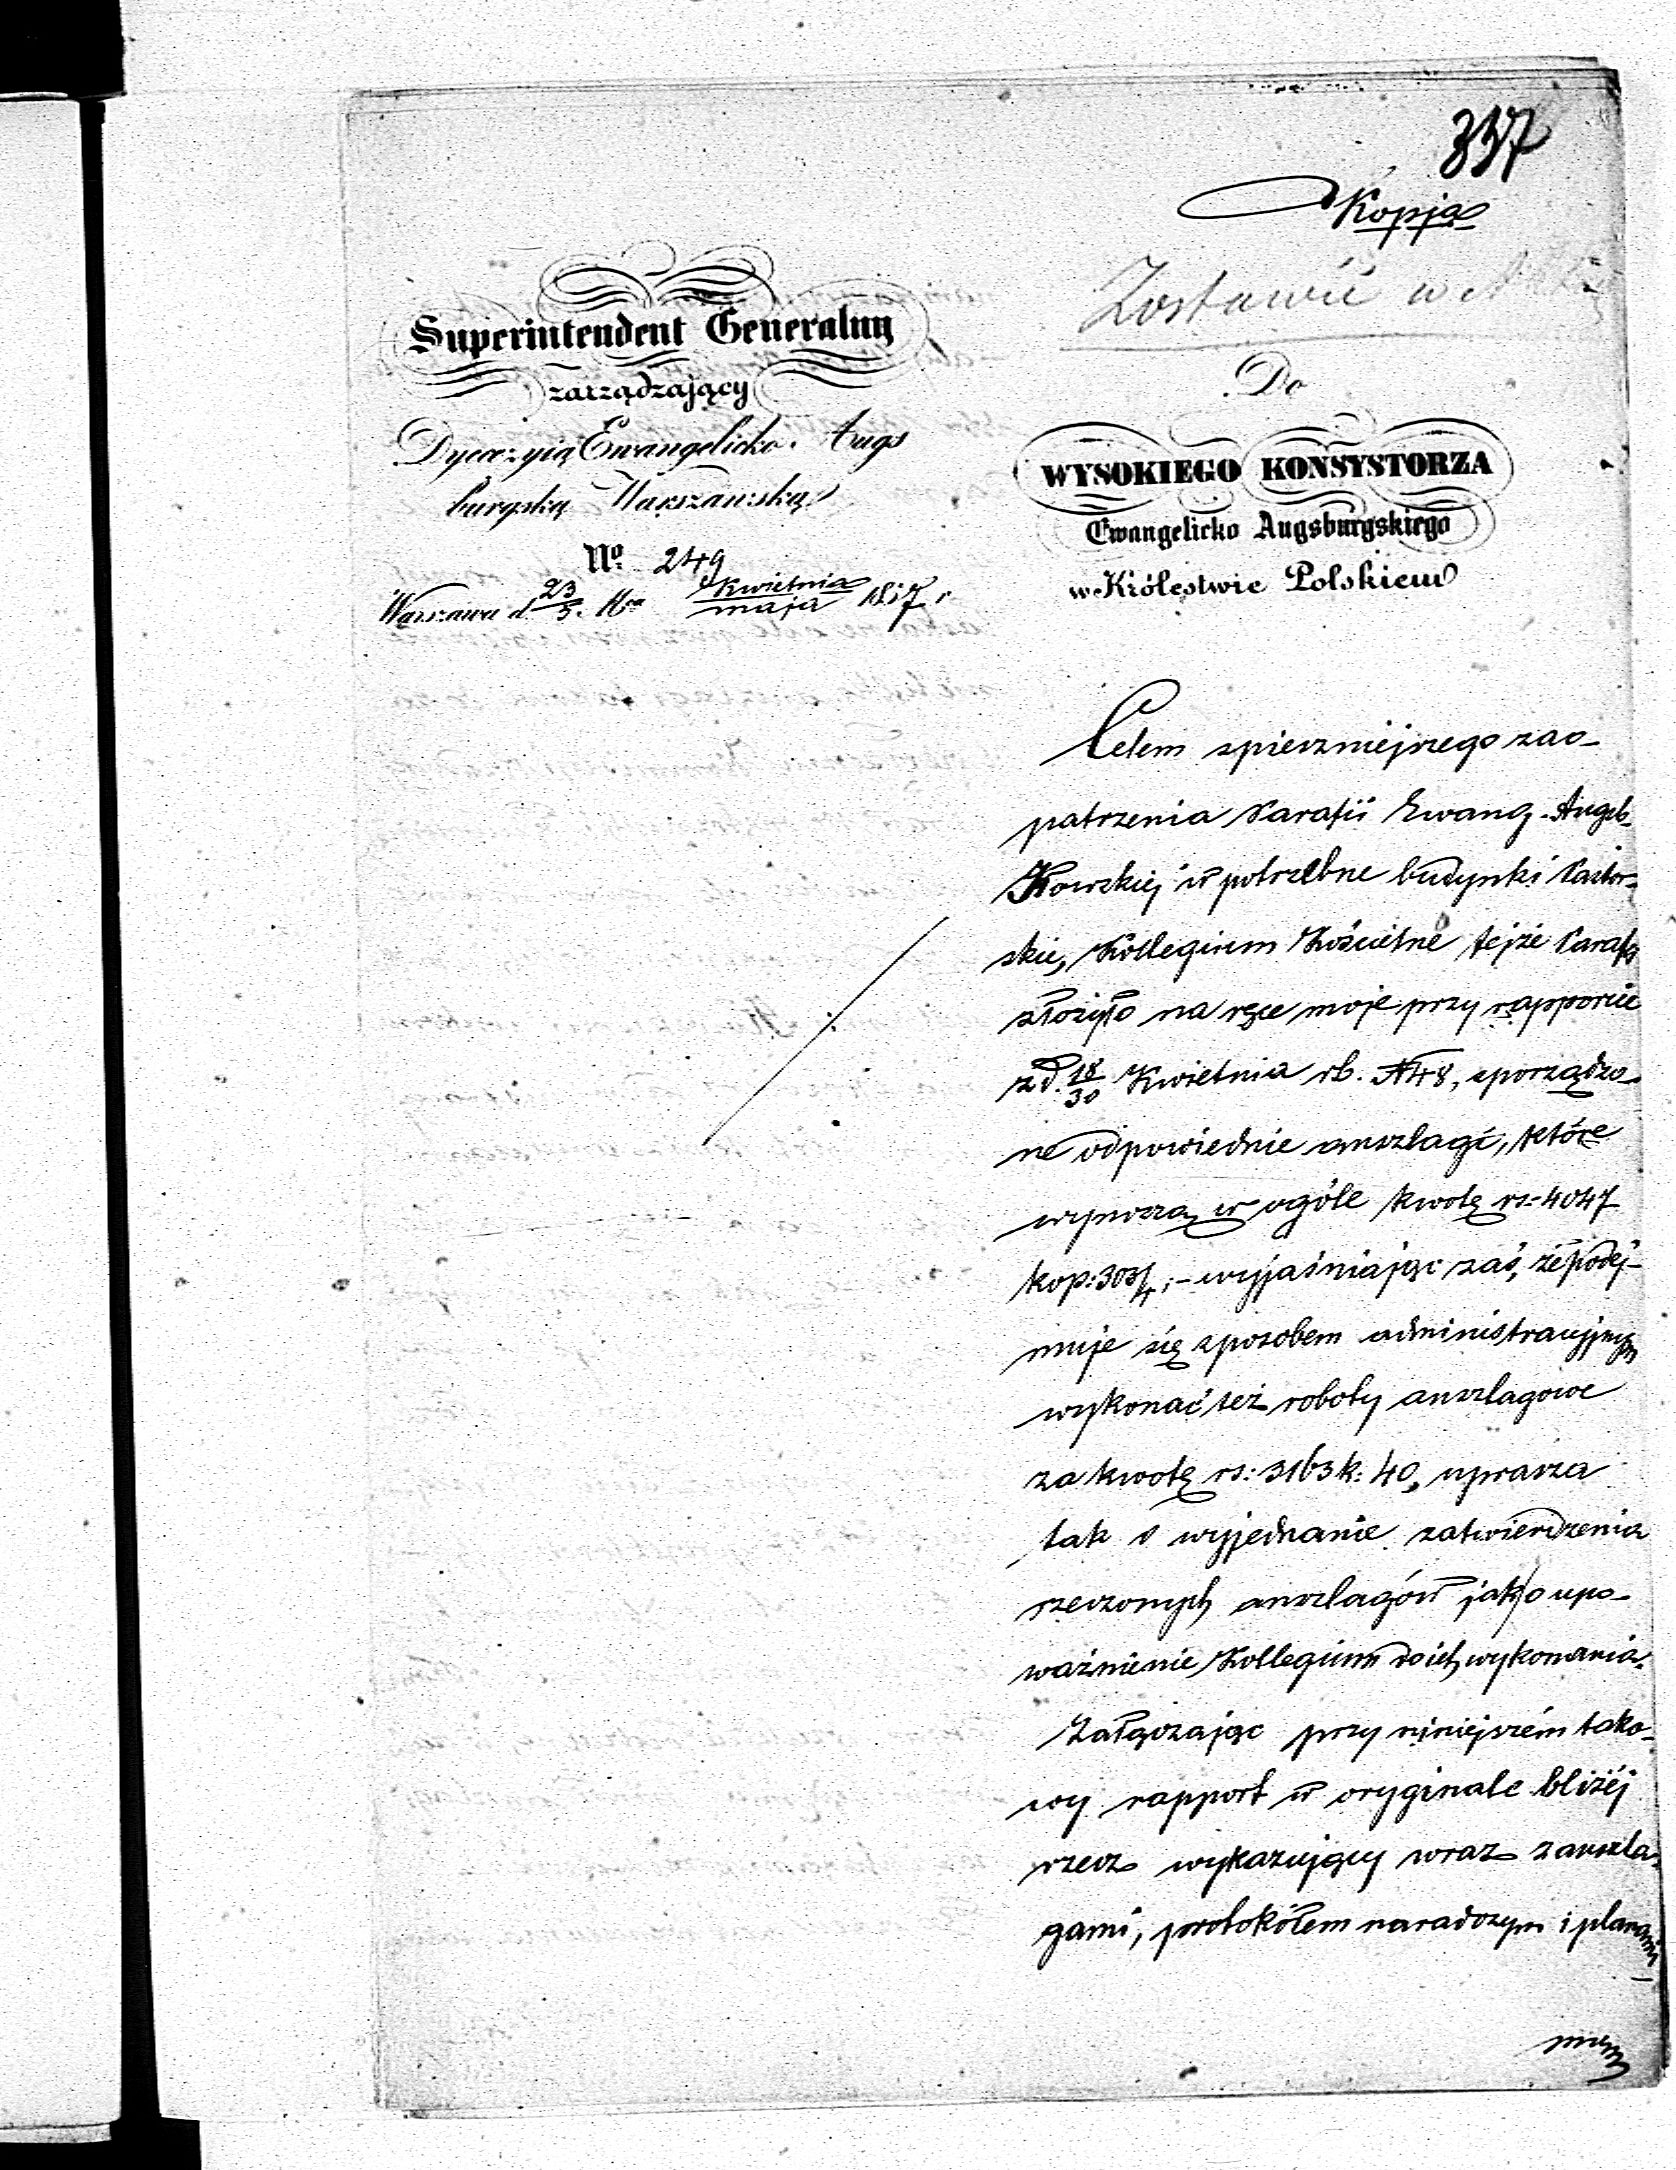 337
Kopja
Zostawić w
Superintendent Generalny
zarządzający
Dyecezyią Ewangelicko. Augs
burgską Warszawską
No. 249
Warszawa d. 23/5. Mca Kwietnia/maja 1857 r
Do
WYSOKIEGO KONSYSTORZA
Ewangelicko Augsburgskiego
w Królestwie Polskiem
Celem spieszniejszego zao-
patrzenia Parafii Ewang. Augsb.
Kowskiej w potrzebne budynki Pastor-
skie, Kollegium Kościelne tejże Parafii
złożyło na ręce moje przy rapporcie
z d. 18/30 Kwietnia rb. N 48, sporządzo-
ne odpowiednie anszlagi, które
wynoszą w ogóle kwotę rs. 4047
kop: 30 3/4; - wyjaśniając zaś, że podej-
muje się sposobem administracyjnym
wykonać też roboty anszlagowe
za kwotę rs: 3163 k: 40, uprasza
tak o wyjednanie zatwierdzenia
rzeczonych anszlagów jak o upo-
ważnienie Kollegium do ich wykonania.
Załączając przy niniejszém tako-
wy rapport w oryginale bliżéj
rzecz wykazujący wraz z anszla-
gami, protokółem naradczym i planami,
mam